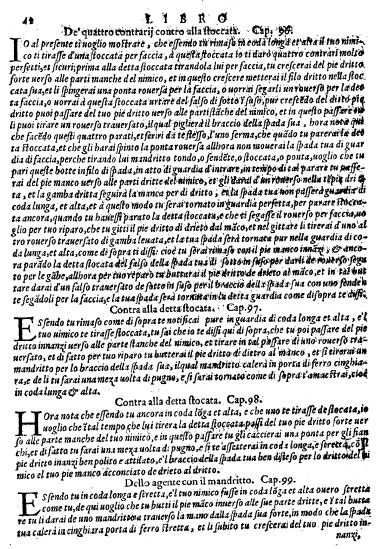 L I B R O
De' quattro contrarij contro alla stoccata. Cap. 96.
IO al presente ti voglio mostrare, che essendo tu rimaso in coda longa et alta il tuo nimi-
co ti tirasse d'una stoccata per faccia, à questa stoccata io ti darò quattro contrari molto
perfetti, et sicuri; prima alla detta stoccata tirandola lui per faccia, tu crescerai del pie dritto
forte verso alle parti manche del nimico, et in questo crescere metterai il filo dritto nella stoc
cata sua, et li spingerai una ponta roverscia per faccia, o vorrai segarli un roverso per la det
ta faccia, o vorrai à questa stoccata urtare del falso di sotto 'n suso, pur crescendo del detto piè
dritto puoi passare del tuo pie dritto verso alle parti stanche del nimico, et in questo passare tu
li puoi tirare un roverso trasversato, il qual piglierà il braccio della spada sua, hora nota
che facendo questi quattro parati, et ferirai da te stesso, l'uno ferma, che quando tu pararai la det
ta stoccata, et che gli harai spinto la ponta roversa allhora non moverai la spada tua di guar
dia di faccia, perche tirando lui mandritto tondo, o fendente, o stoccata, o ponta, voglio che tu
pari queste botte in filo di spada, in atto di guardia d'intrare, in tempo di tal parare tu passe-
rai del pie manco verso alle parti dritte del nimico, et gli darai d'un roverso nella tempia dirit
ta, et la gamba dritta seguirà la manca per di drieto, et la spada tua non passerà guardia di
coda longa, et alta, et à questo modo tu serai tornato in guardia perfetta, per parare stocca-
ta ancora, quando tu havesti parato la detta stoccata, et che ti segasse il roverso per faccia, vo
glio per tuo riparo, che tu gitti il pie dritto di drieto dal manco, et nel gittare li tirerai d'uno al
tro roverso trasversato di gamba levata, et la tua spada serà tornata pur nella guardia di co-
da longa, et alta, come di sopra ti dissi: cioè tu serai rimaso con il pie manco inanzi; et anco-
ra parado la detta stoccata del falso della spada tua di sotto in suso per darli de roverso sega
to per le gambe, allhora per tuo riparo tu buttarai il pie dritto de drieto al manco, et in tal but
tare darai d'un falso traversato de sotto in suso per il braccio della spada sua con uno fenden
te segadoli per la faccia, e la tua spada serà tornata in la detta guardia come di sopra te dissi.
Contra alla detta stoccata. Cap. 97.
ESsendo tu rimaso come di sopra te notificai pure in guardia di coda longa et alta, e'l
tuo nimico te tirasse stoccata, tu sai che io te dissi qui di sopra, che tu poi passare del pie
dritto innanzi verso alle parte stanche del nimico, et tirare in tal passare di uno roverso tra-
versato, et di fatto per tuo riparo tu butterai il pie dritto di dietro al manco, et li tirerai un
mandritto per lo braccio della spada sua, il qual mandritto calerà in porta di ferro cinghia-
ra, e de lì farai una meza volta di pugno, e si farai tornato come di sopra t'amaestrai, cioè
in coda longa et alta.
Contra alla detta stocata. Cap. 98.
HOra nota che essendo tu ancora in coda lõga et alta, e che uno te tirasse de stocata, io
voglio che 'n tal tempo che lui tirerà la detta stoccata passi del tuo pie dritto forte ver
so alle parte manche del tuo nimico, e in questo passare tu gli cacciarai una ponta per gli fian
chi, et di fatto tu farai una meza volta di pugno, e si te assetterai in coda longa, e stretta, cõ'l
pie dritto inanzi ben polito e attidato, e'l braccio della spada tua ben disteso per lo dritto del ni
mico el tuo pie manco acconciato de drieto al dritto.
Dello agente con il mandritto. Cap. 99.
ESsendo tu in coda longa e stretta, e'l tuo nimico fusse in coda lõga et alta overo stretta
come tu, de quì voglio che tu butti il pie mãco inverso alle sue parte dritte, e'n tal butta
re tu li darai de uno mandritto traverso la mano dalla spada sua forte, in modo che la spada
tua calerà in cinghiara porta di ferro stretta, et lì subito tu crescerai del tuo pie dritto in-
nanzi,